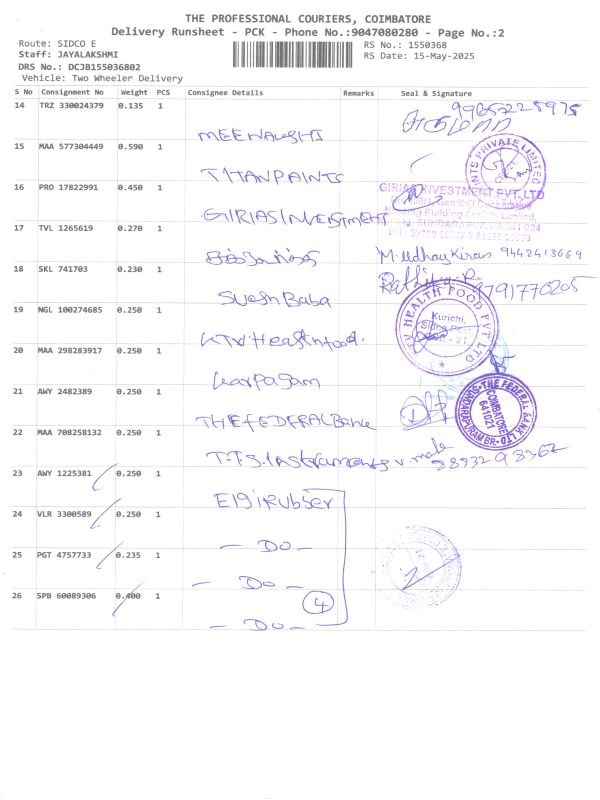 THE PROFESSIONAL COURIERS, COIMBATORE
Delivery Runsheet - PCK - Phone No.:9047080280 - Page No.:2
Route: SIDCO E
Staff: JAYALAKSHMI
DRS No.: DCJB155036802
Vehicle: Two Wheeler Delivery
RS No.: 1550368
RS Date: 15-May-2025
S No Consignment No Weight PCS Consignee Details Remarks Seal & Signature
14 TRZ 330024379 0.135 1
MEENAKSHI
15 MAA 577304449 0.590 1
TITAN PAINTS
NTS PRIVATE LIMITED
16 PRO 17822991 0.450 1
GIRIAS INVESTMENT
GIRIAS INVESTMENT PVT. LTD
17 TVL 1265619 0.270 1
M. Udhay Kiran 9442413669
18 SKL 741703 0.230 1
Rathi 9791770205
Baba
19 NGL 100274685 0.250 1
KTV Health food.
KTV HEALTH FOOD PVT LTD
Kurichi,
20 MAA 298283917 0.250 1
Karpagam
21 AWY 2482389 0.250 1
THE FEDERAL Bank
THE FEDERAL BANK LTD
COIMBATORE
641021
22 MAA 708258132 0.250 1
T.T.S. Instruments
23 AWY 1225381 0.250 1
Elgi Rubber
24 VLR 3300589 0.250 1
- Do -
25 PGT 4757733 0.235 1
- Do -
26 SPB 60089306 0.400 1
4
- Do -